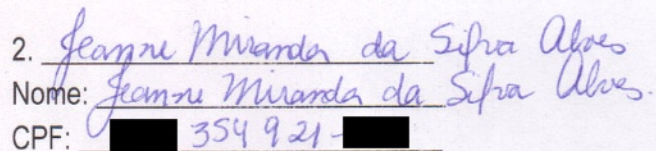 2. Jeanne Miranda da Silva Alves
Nome: Jeanne Miranda da Silva Alves.
CPF: 354 921-